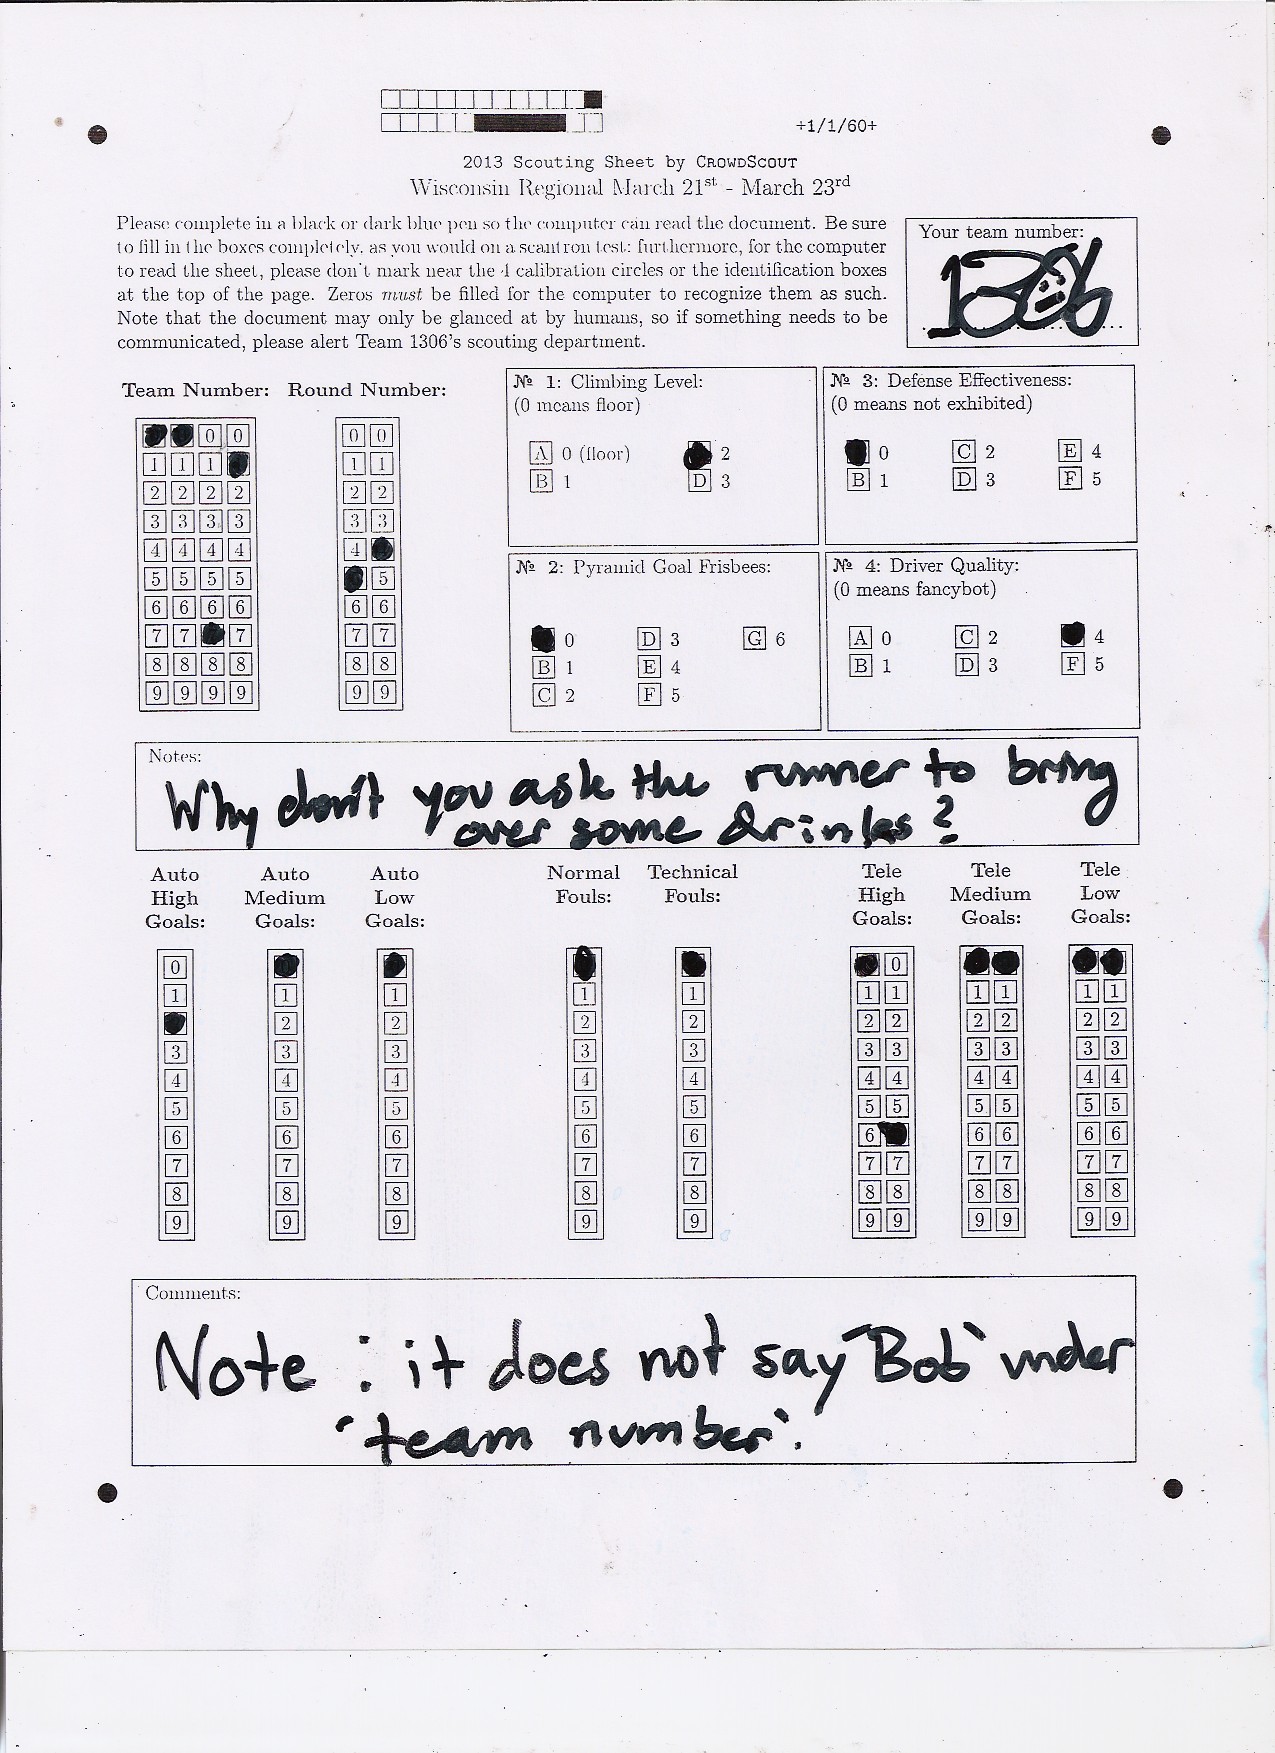 +1/1/60+
2013 Scouting Sheet by CROWDSCOUT
Wisconsin Regional March 21st - March 23rd
Please complete in a black or dark blue pen so the computer can read the document. Be sure
to fill in the boxes completely, as you would on a scantron test; furthermore, for the computer
to read the sheet, please don't mark near the 4 calibration circles or the identification boxes
at the top of the page. Zeros must be filled for the computer to recognize them as such.
Note that the document may only be glanced at by humans, so if something needs to be
communicated, please alert Team 1306's scouting department.
Your team number:
1306
Team Number: Round Number:
0 0 0 0
1 1 1 1 1
2 2 2 2 2 2
3 3 3 3 3 3
4 4 4 4 4
5 5 5 5 5
6 6 6 6 6 6
7 7 7 7 7
8 8 8 8 8 8
9 9 9 9 9 9
№ 1: Climbing Level:
(0 means floor)
A 0 (floor) 2
B 1 D 3
№ 3: Defense Effectiveness:
(0 means not exhibited)
0 C 2 E 4
B 1 D 3 F 5
№ 2: Pyramid Goal Frisbees:
0 D 3 G 6
B 1 E 4
C 2 F 5
№ 4: Driver Quality:
(0 means fancybot)
A 0 C 2 4
B 1 D 3 F 5
Notes:
Why don't you ask the runner to bring
over some drinks?
Auto High Goals: Auto Medium Goals: Auto Low Goals: Normal Fouls: Technical Fouls: Tele High Goals: Tele Medium Goals: Tele Low Goals:
0 0
1 1 1 1 1 1 1 1 1 1 1
2 2 2 2 2 2 2 2 2 2
3 3 3 3 3 3 3 3 3 3 3
4 4 4 4 4 4 4 4 4 4 4
5 5 5 5 5 5 5 5 5 5 5
6 6 6 6 6 6 6 6 6 6
7 7 7 7 7 7 7 7 7 7 7
8 8 8 8 8 8 8 8 8 8 8
9 9 9 9 9 9 9 9 9 9 9
Comments:
Note : it does not say "Bob" under
'team number'.